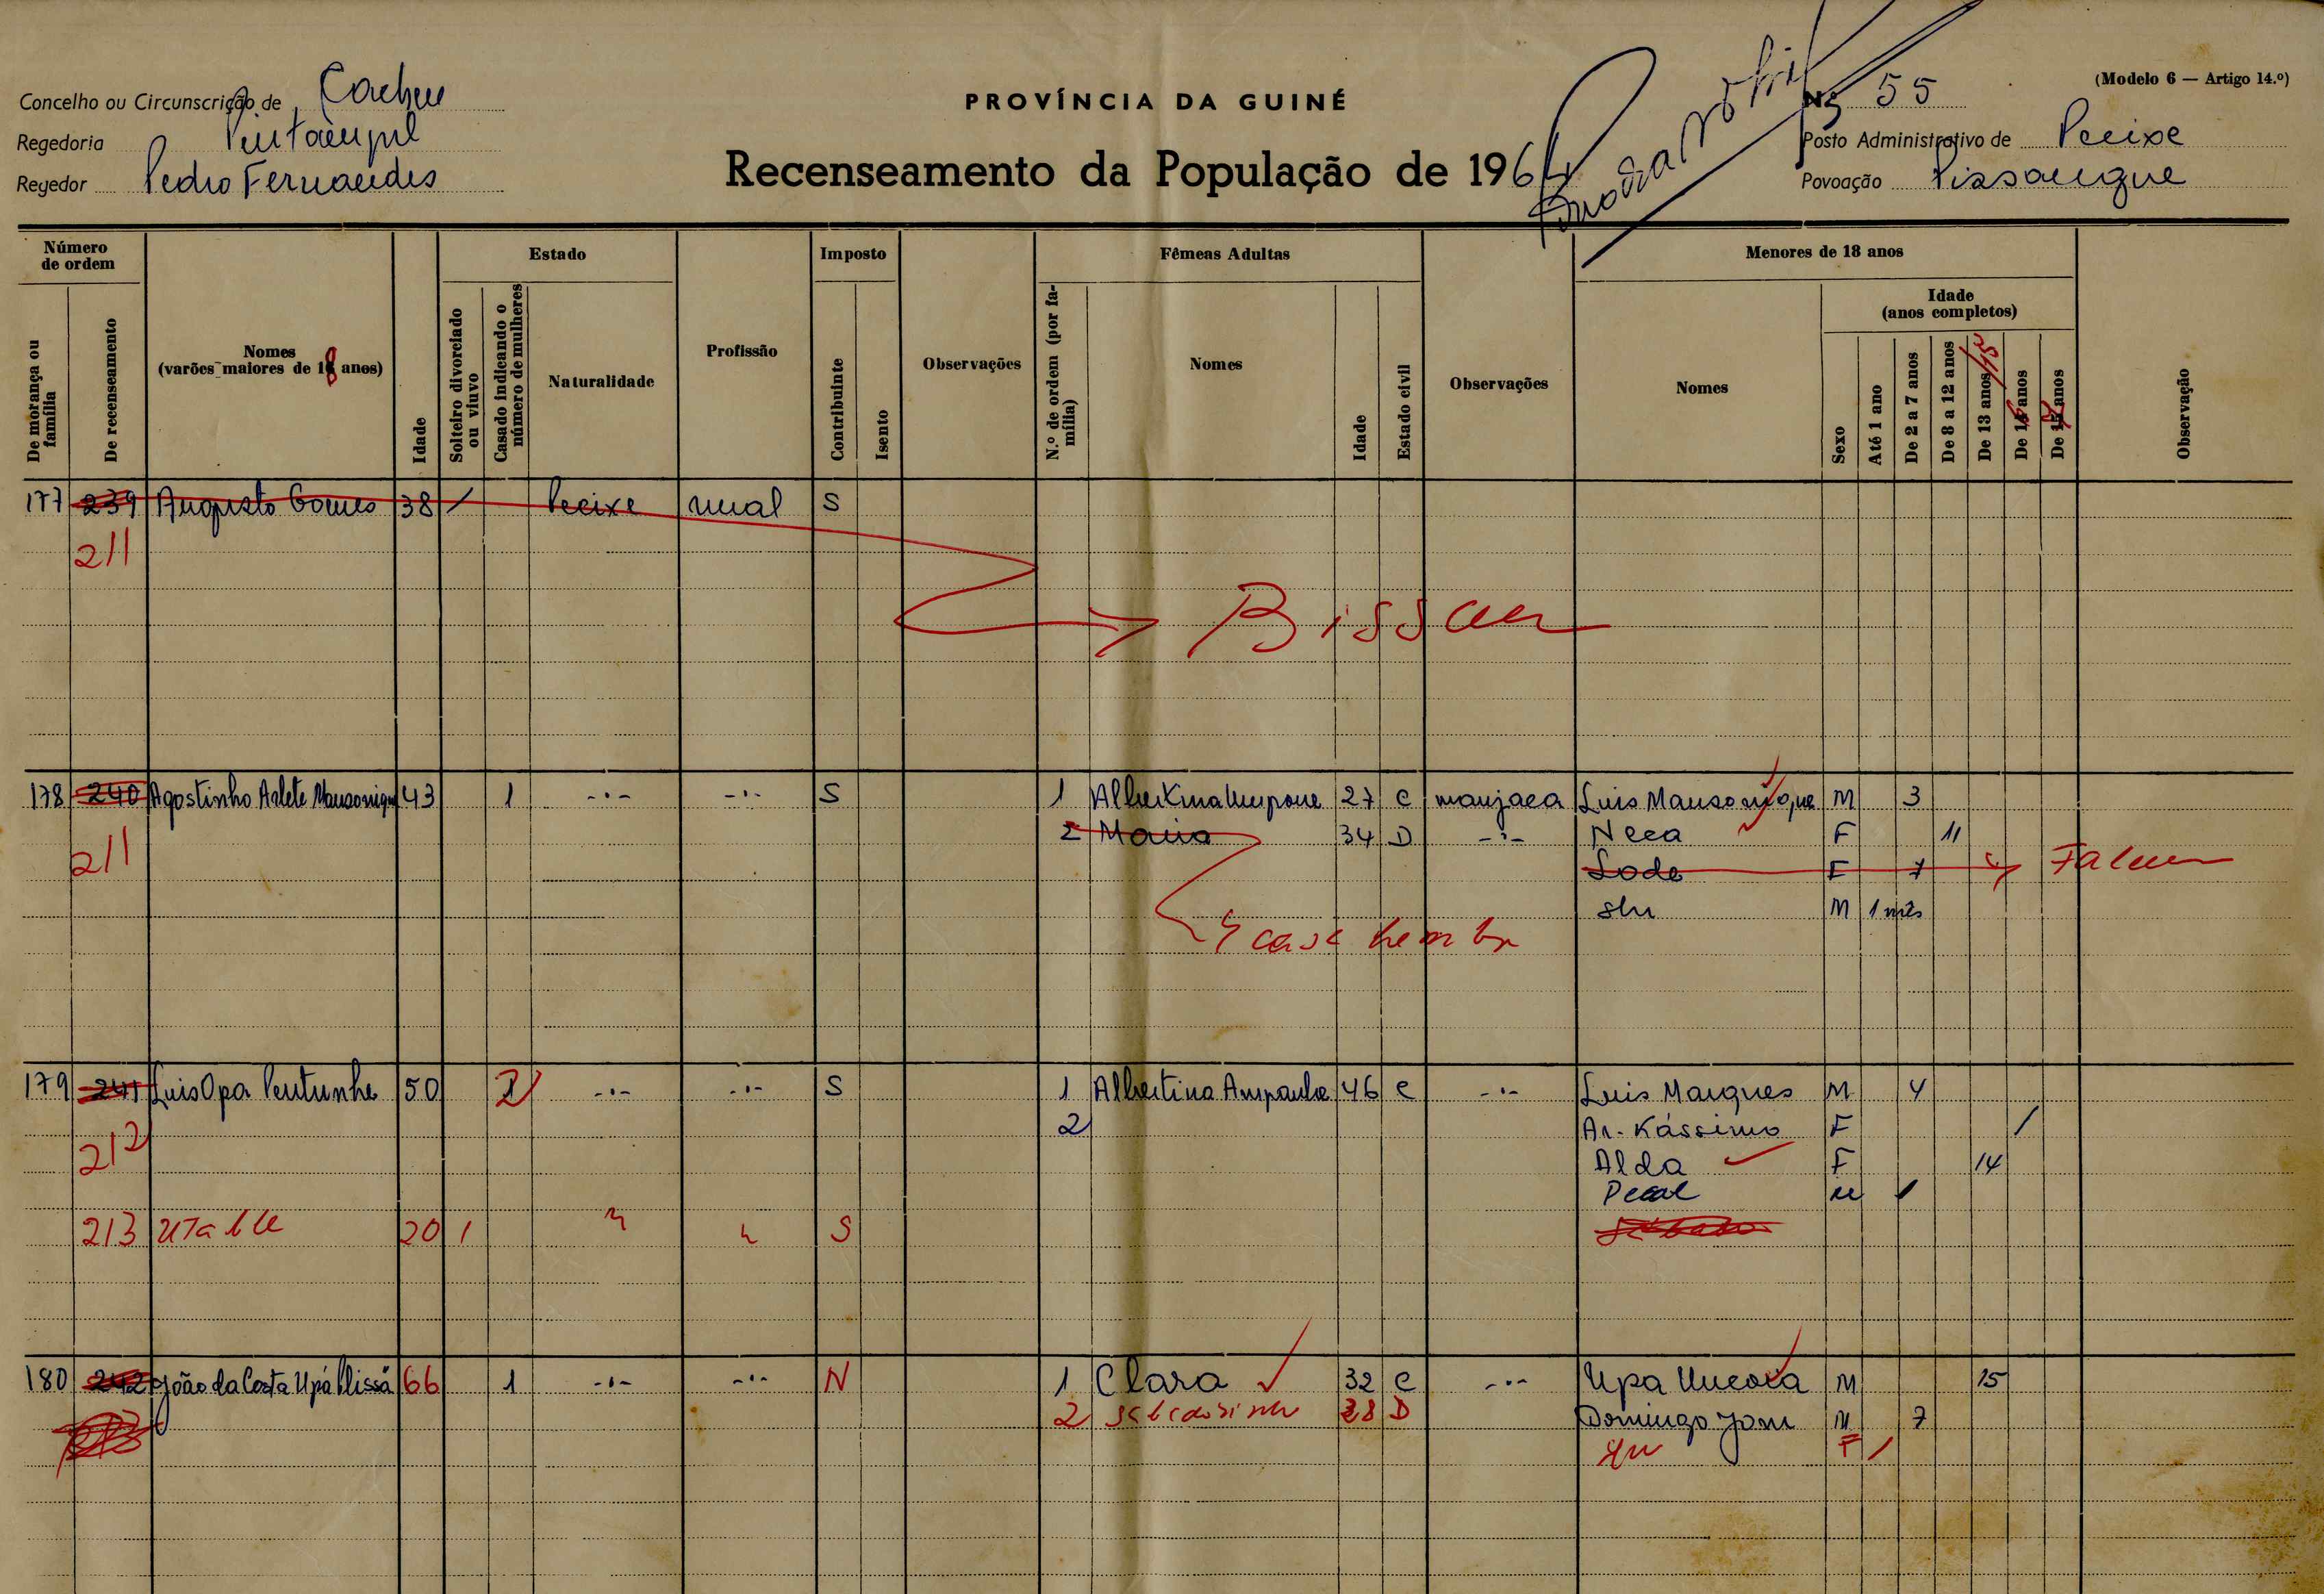 (Modelo 6 — Artigo 14.º)
Concelho ou Circunscrição de Cacheu
PROVÍNCIA DA GUINÉ
N.º 55
Regedoria
Posto Administrativo de Pecixe
Regedor Pedro Fernandes
Recenseamento da População de 1964
Povoação Pissangue
Número de ordem
Estado
Imposto
Fêmeas Adultas
Menores de 18 anos
De morança ou família
De recenseamento
Nomes (varões maiores de 18 anos)
Idade
Solteiro divorciado ou viuvo
Casado indicando o número de mulheres
Naturalidade
Profissão
Contribuinte
Isento
Observações
N.º de ordem (por família)
Nomes
Idade
Estado civil
Observações
Nomes
Idade (anos completos)
Sexo
Até 1 ano
De 2 a 7 anos
De 8 a 12 anos
De 13 anos /15
De anos
De anos
Observação
177 239 Augusto Gomes 38 / Pecixe rural S
211
Bissau
178 240 Agostinho Arlete 43 1 -·- -·- S 1 27 C manjaca Luis M 3
2 Maria 34 D -·- Neca F 11
211 Lode F 7 Faleceu
M 1 mês
179 241 Luis Opa 50 2 -·- -·- S 1 Albertina 46 C -·- Luis Marques M 4
2 F /
212 Alda F 14
213 20 1 S
180 242 João da Costa 66 1 -·- -·- N 1 Clara 32 C -·- Upa M 15
2 28 D Domingo M 7
F /